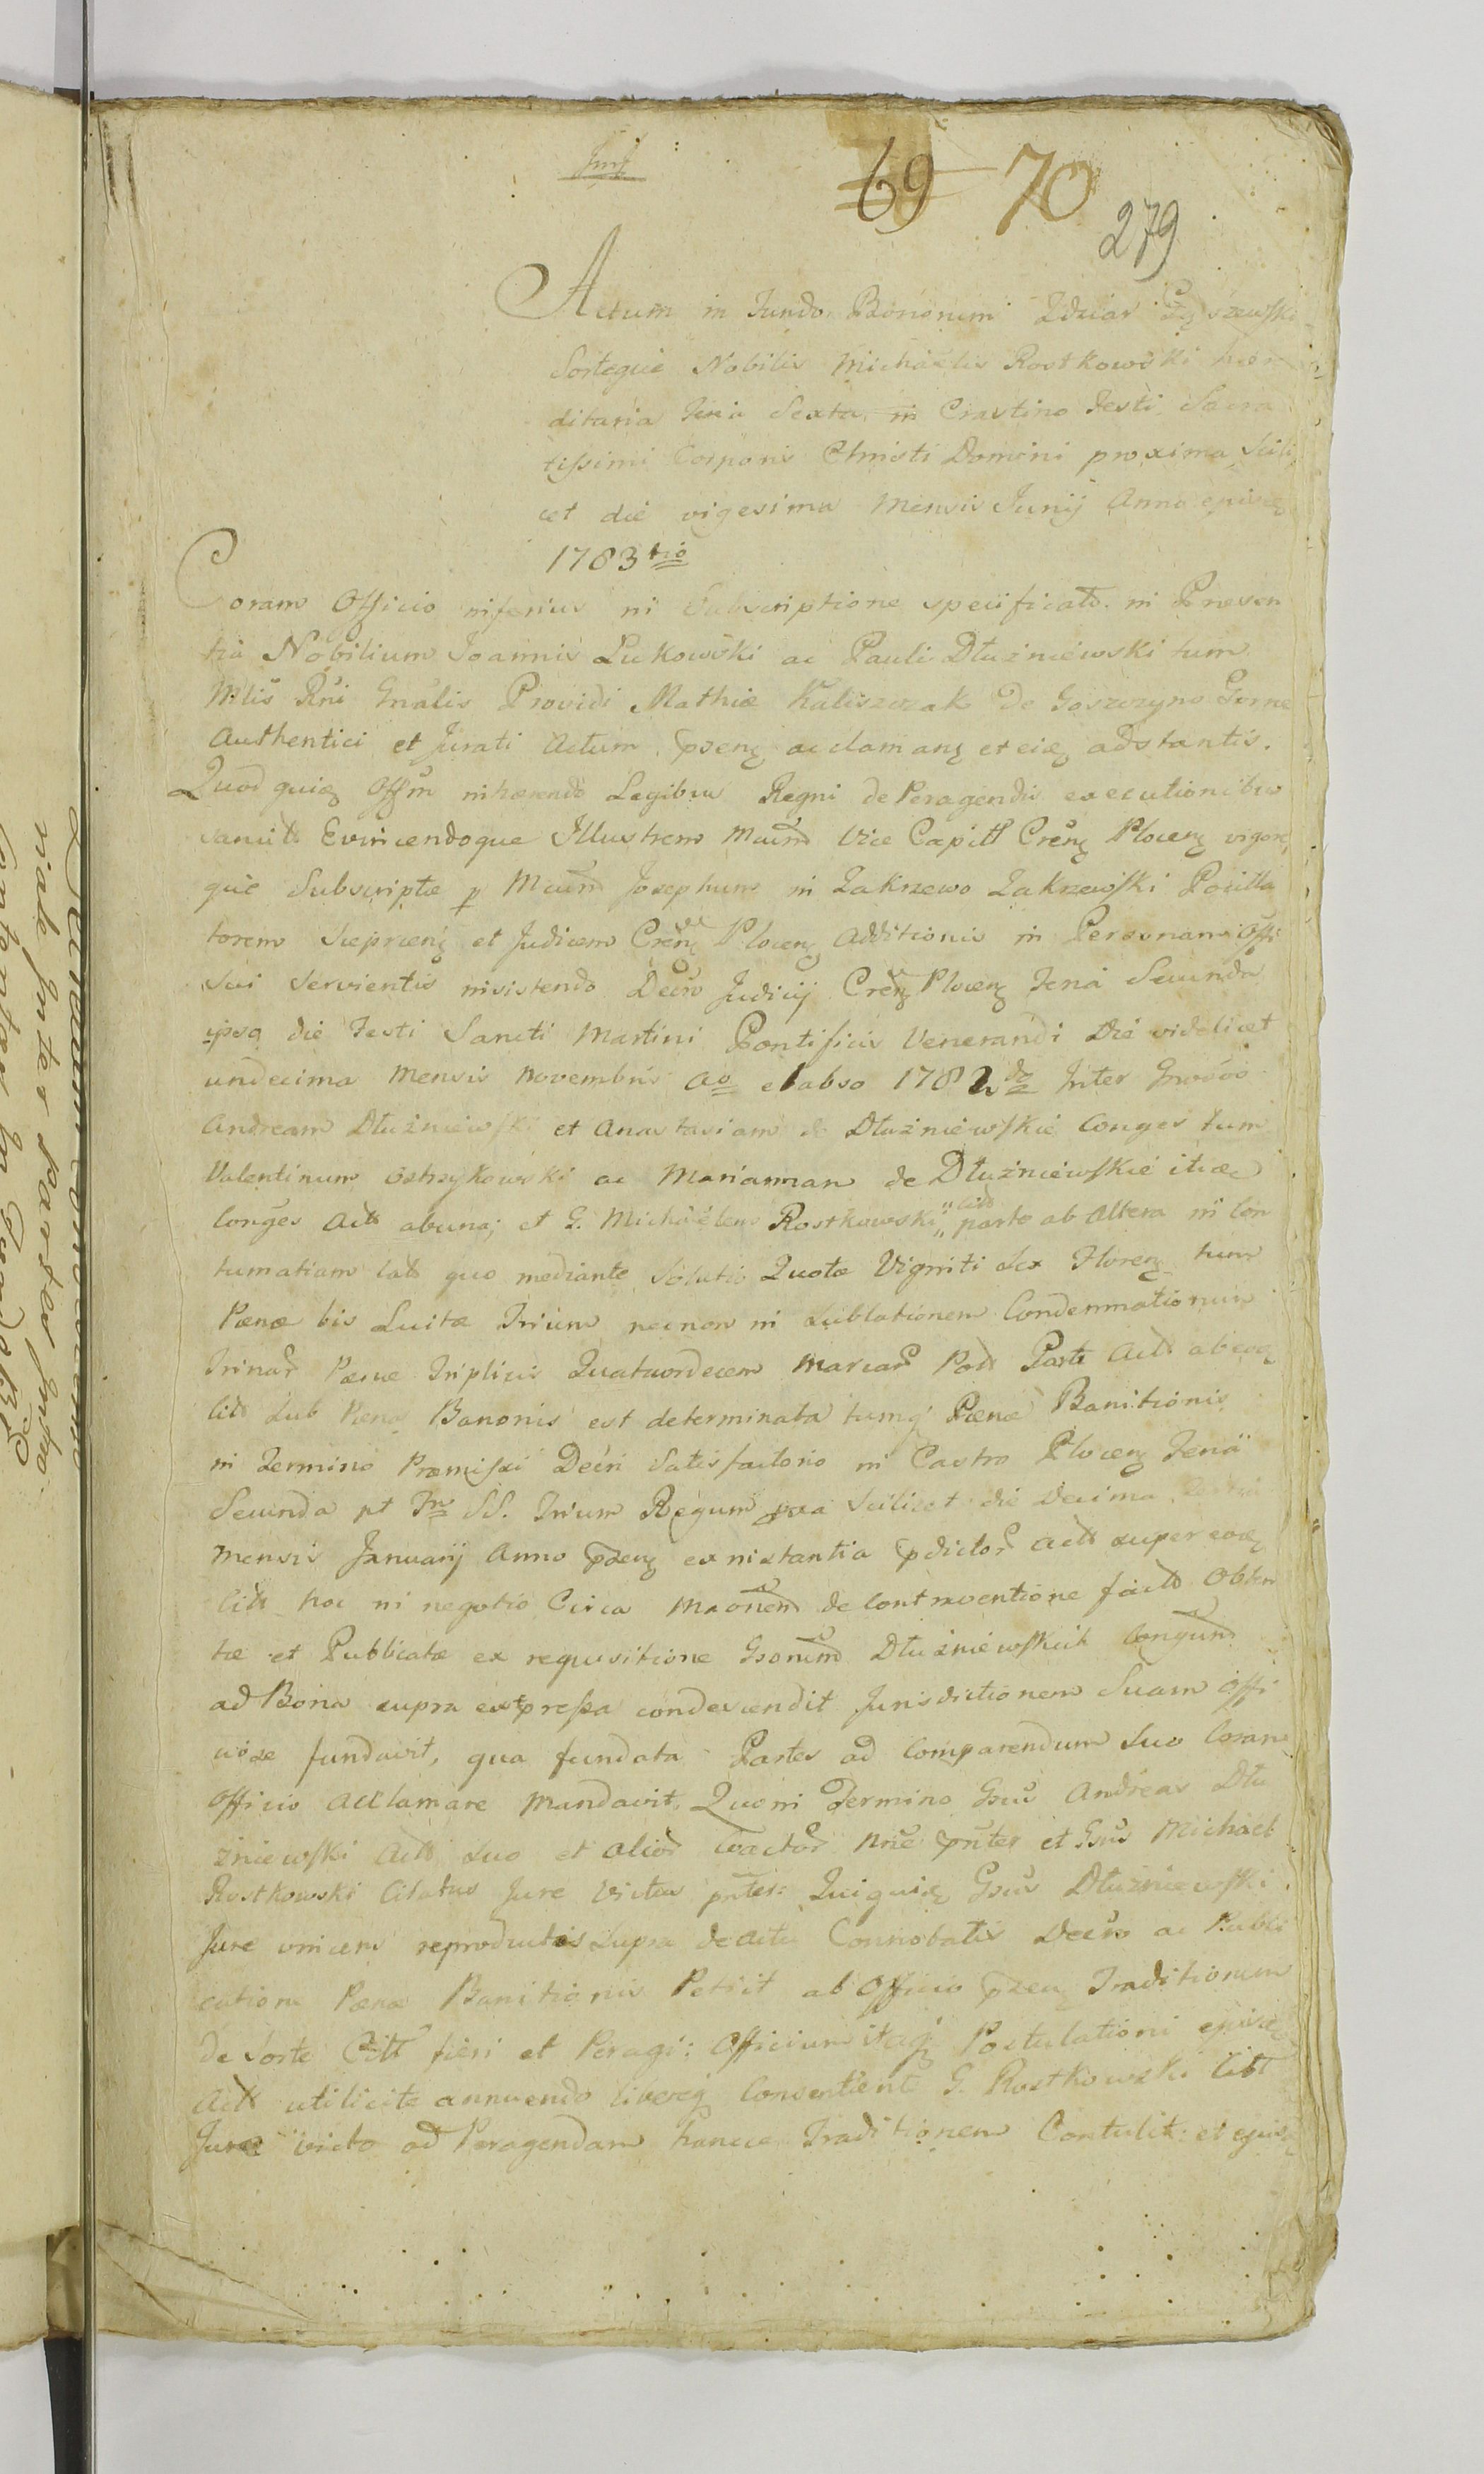 69 70
279
Actum in Fundo Bonorum Zdziar
Sorteque Nobilis Michaelis Rostkowski hære
ditaria Feria Sexta in Crastino Festi Sacra
tissimi Corporis Christi Domini proxima Scili
cet die vigesima Mensis Junij Anno
1783tio
Coram Officio inferius in Subscriptione specificato in Præsen
tia Nobilium Joannis Lukowski ac Pauli Dłużniewski tum
Mlis Rni Gnalis Providi Mathiæ Kaliszczak de Goszczyno Gorne
Authentici et Jurati Actum pseng acclamang et adstantis.
Quod quidq Offm inhærendo Legibus Regni de Peragendis executionibus
sancit Evincendoque Illustrem Mcum Vice Capitt Creng Ploceng vigore
que Subscriptæ p Mcum Josephum in Zakrzewo Zakrzewski
torem Sieprceng et Judicem Creng Ploceng Additionis in Personam Offi
Sui Servientis insistendo Decro Judicij Creng Ploceng Feria Secunda
ipso die Festi Sancti Martini Pontificis Venerandi Die videlicet
undecima Mensis Novembris Ao elabso 1782do Inter Grosos
Andream Dłużniewski et Anastasiam de Dłużniewskie Conges tum
Valentinum Ostrzykowski ac Mariannam de Dłużniewskie itidc
Conges Acto abuna; et G. Michaëlem Rostkowski cito parte ab Altera in Con
tumatiam lato quo mediante Solutio Quotæ Viginti Sex Floreng tum
Pænæ bis Luitæ Trium necnon in Sublationem Condemnationum
Trinar Pænæ Triplicis Quatuordecem Marcar Pod Parte Acto ab
Cito Sub Pæna Banonis est determinata tumq Pænæ Banitionis
in Termino Præmissi Decri Satisfactorio in Castro Ploceng Feria
Secunda pt Fm SS. Trium Regum pxa Scilicet die Decima
Mensis Januarij Anno pseng ex instantia pdictor Acto super
Cito hoc in negotio Circa Maonem de Contraventione facto Obten
tæ et Publicatæ ex requisitione Gsorum Dłużniewskich Congum
ad Bona supra expressa condescendit Jurisdictionem Suam Offi
ciose fundavit, qua fundata Partes ad Comparendum Suo Coram
Officio Acclamare Mandavit. Quo in Termino Gsus Andreas Dłu
żniewski Acto Suo et alior Coactor Nne pnter et Gsus Michael
Rostkowski Citatus Jure Victus pnter: Qui quidq Gsus Dłużniewski
Jure vincens reproductis Supra de actu Connotatis Decro ac Publi
cationæ Pænæ Banitionis Petiit ab Officio pseng Traditionem
de Sorte Citt fieri et Peragi: Officium itaq Postulationi
Acto utilicite annuendo libereq Consentient G. Rostkowski Citt
Jure victo ad Peragendam hancce Traditionem Contulit: et